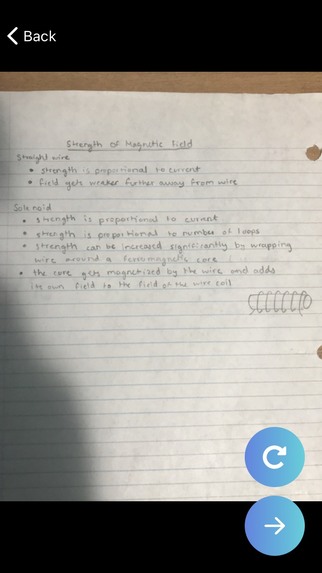 Back
Strength of Magnetic Field
Straight wire
• strength is proportional to current
• field gets weaker further away from wire
Solenoid
• strength is proportional to current
• strength is proportional to number of loops
• strength can be increased significantly by wrapping
wire around a ferromagnetic core
• the core gets magnetized by the wire and adds
its own field to the field of the wire coil